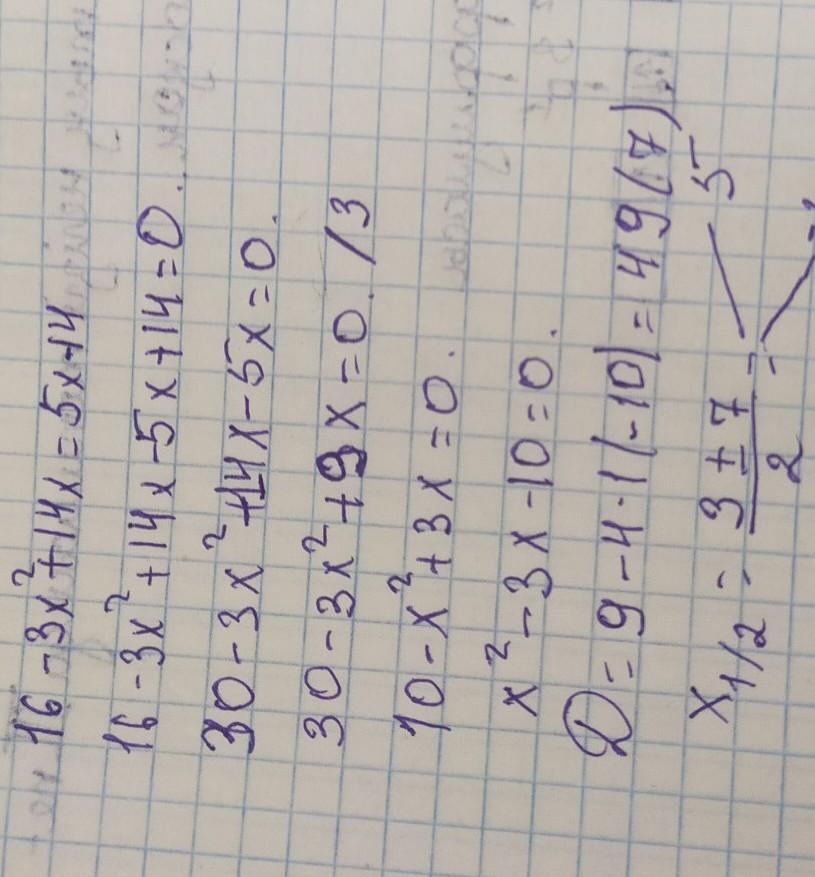 16-3x²+14x=5x-14
16-3x²+14x-5x+14=0.
30-3x²+14x-5x=0.
30-3x²+9x=0. /3
10-x²+3x=0.
x²-3x-10=0.
D=9-4·1(-10)=49(7)
x1/2 = 3±7/2 = 5